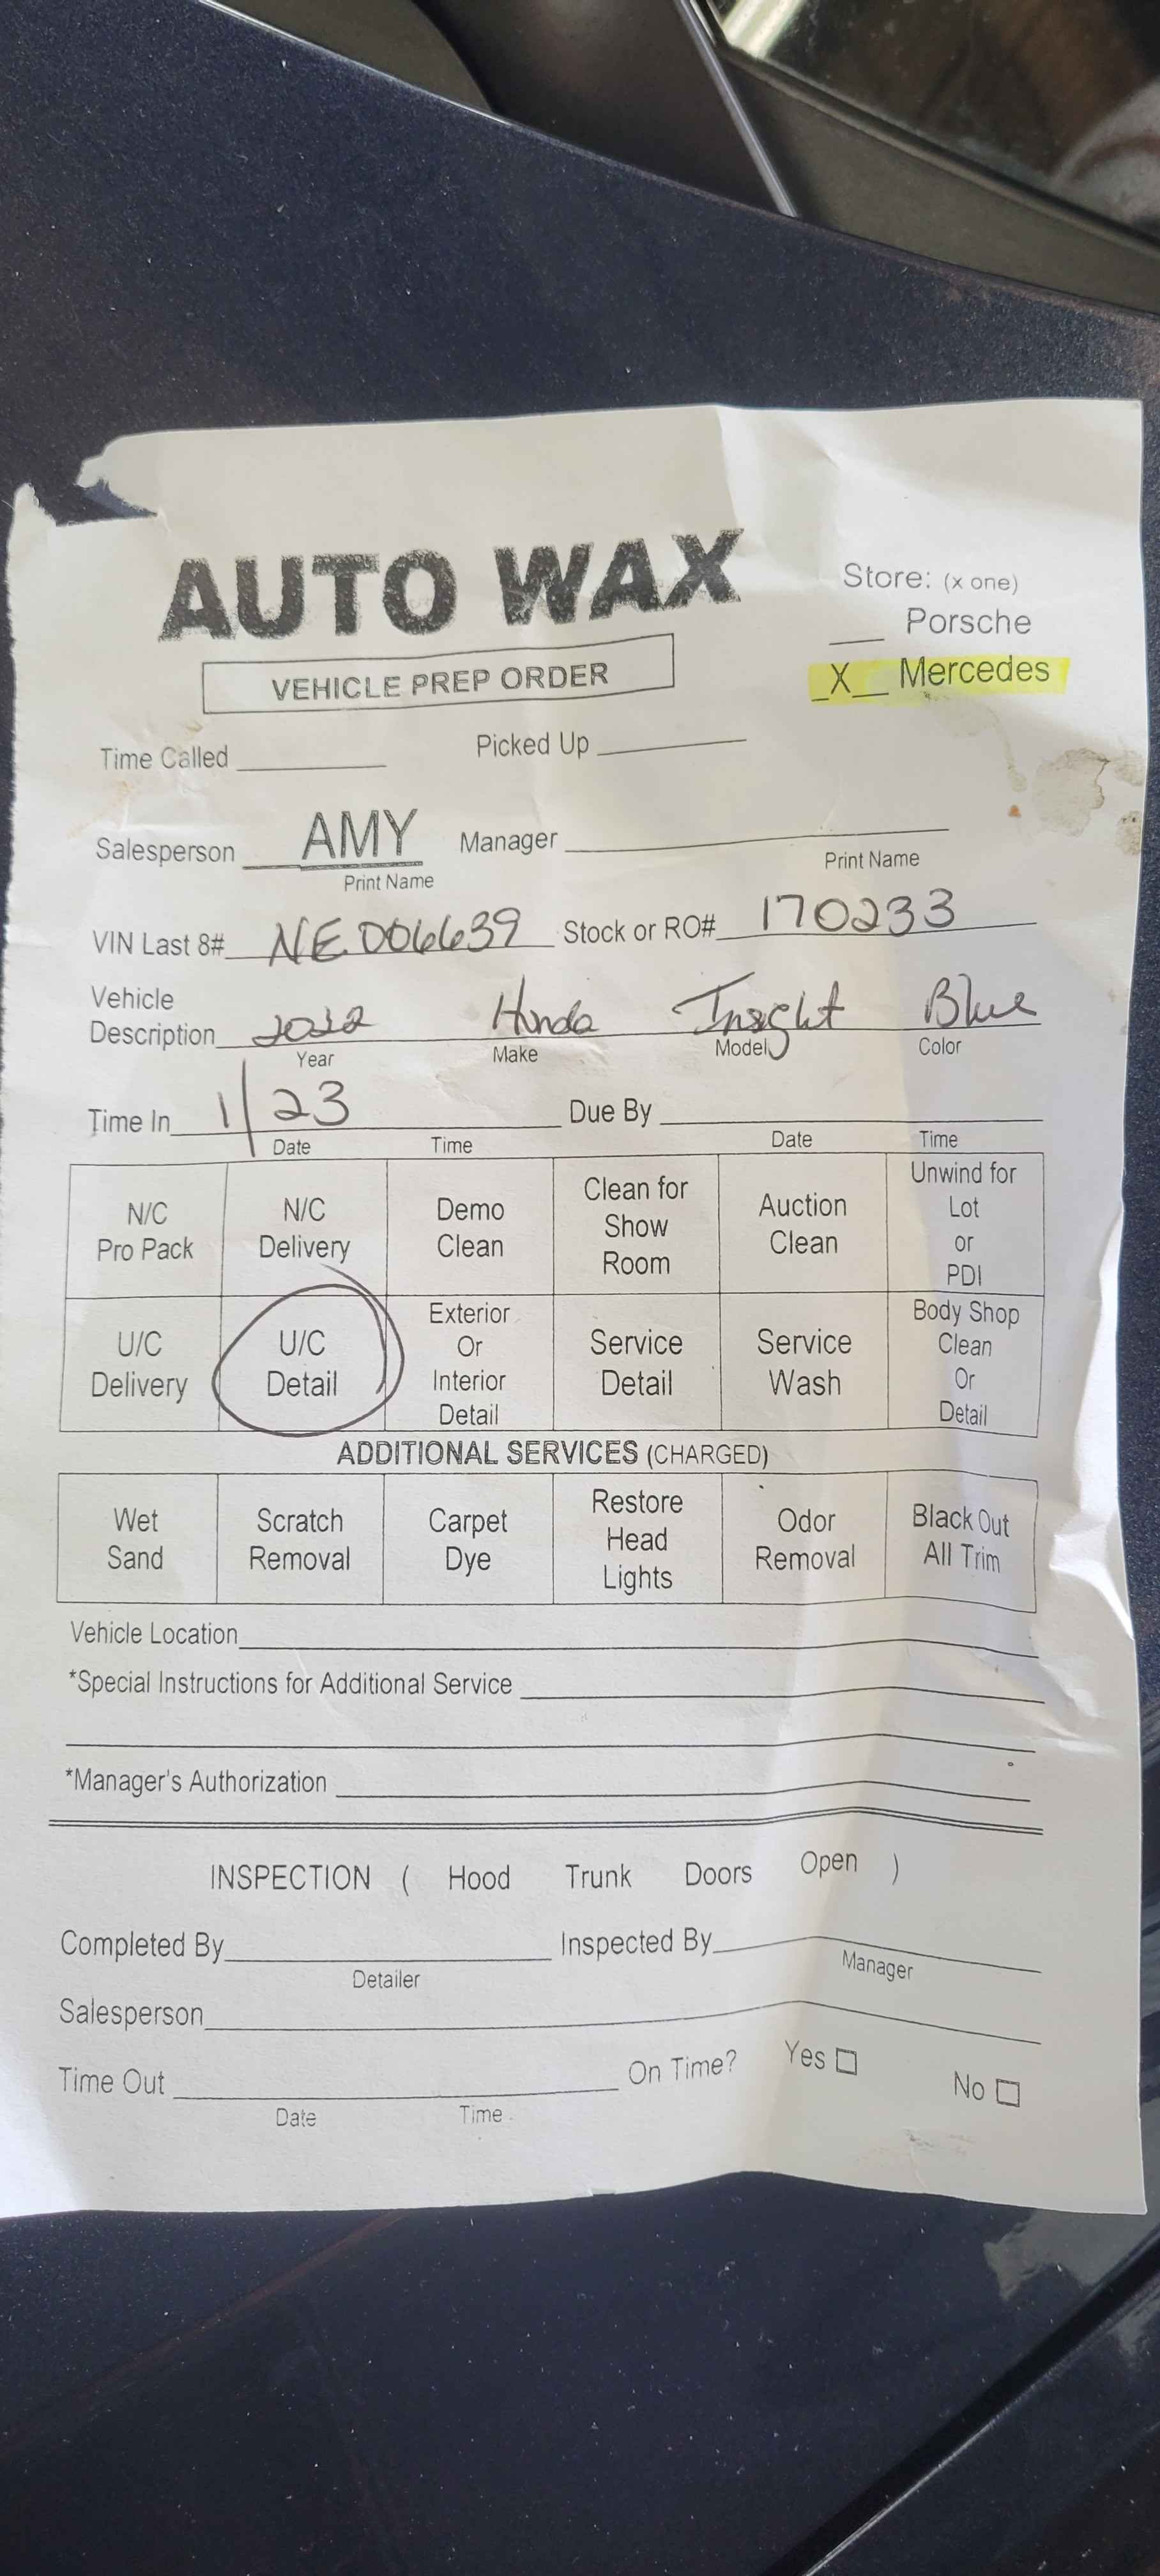 AUTO WAX
VEHICLE PREP ORDER
Store: (x one)
___ Porsche
_X__ Mercedes
Time Called ________ Picked Up ________
Salesperson AMY Manager ________
Print Name Print Name
VIN Last 8# NE006639 Stock or RO# 170233
Vehicle
Description 2022 Honda Insight Blue
Year Make Model Color
Time In 1/23 Due By ________
Date Time Date Time
N/C Pro Pack
N/C Delivery
Demo Clean
Clean for Show Room
Auction Clean
Unwind for Lot or PDI
U/C Delivery
U/C Detail
Exterior Or Interior Detail
Service Detail
Service Wash
Body Shop Clean Or Detail
ADDITIONAL SERVICES (CHARGED)
Wet Sand
Scratch Removal
Carpet Dye
Restore Head Lights
Odor Removal
Black Out All Trim
Vehicle Location ________
*Special Instructions for Additional Service ________
*Manager's Authorization ________
INSPECTION ( Hood Trunk Doors Open )
Completed By ________ Inspected By ________
Detailer Manager
Salesperson ________
Time Out ________ On Time? Yes □ No □
Date Time